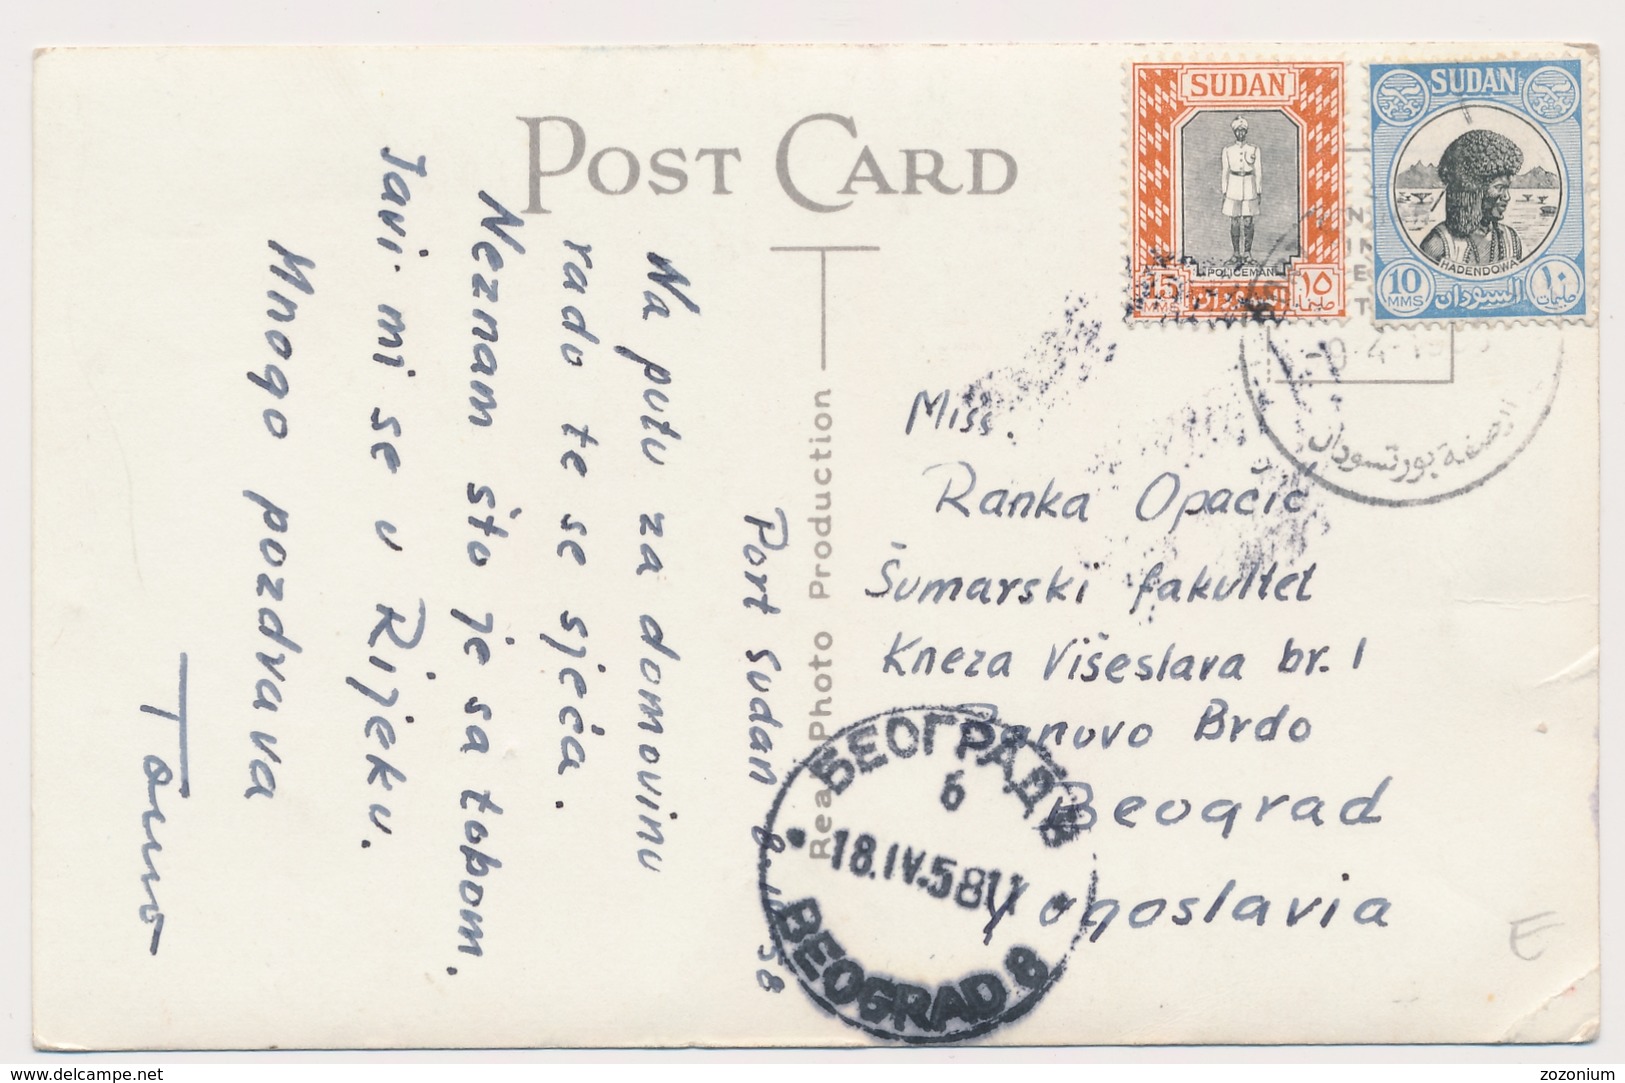 POST CARD
Real Photo Production
Port Sudan 8. IV 58
Na putu za domovinu
rado te se sjeća.
Neznam što je sa tobom.
Javi mi se u Rijeku.
Mnogo pozdrava
Tomo
SUDAN
POLICEMAN
15 MMS
السودان
١٥ مليمات
SUDAN
HADENDOWA
10 MMS
السودان
١٠ مليمات
بورتسودان
Miss.
Ranka Opačić
Šumarski fakultet
Kneza Višeslava br. 1
Banovo Brdo
Beograd
Yogoslavia
БЕОГРАД 8
6
18.IV.58 11
BEOGRAD 8
E
delcampe.net
zozonium